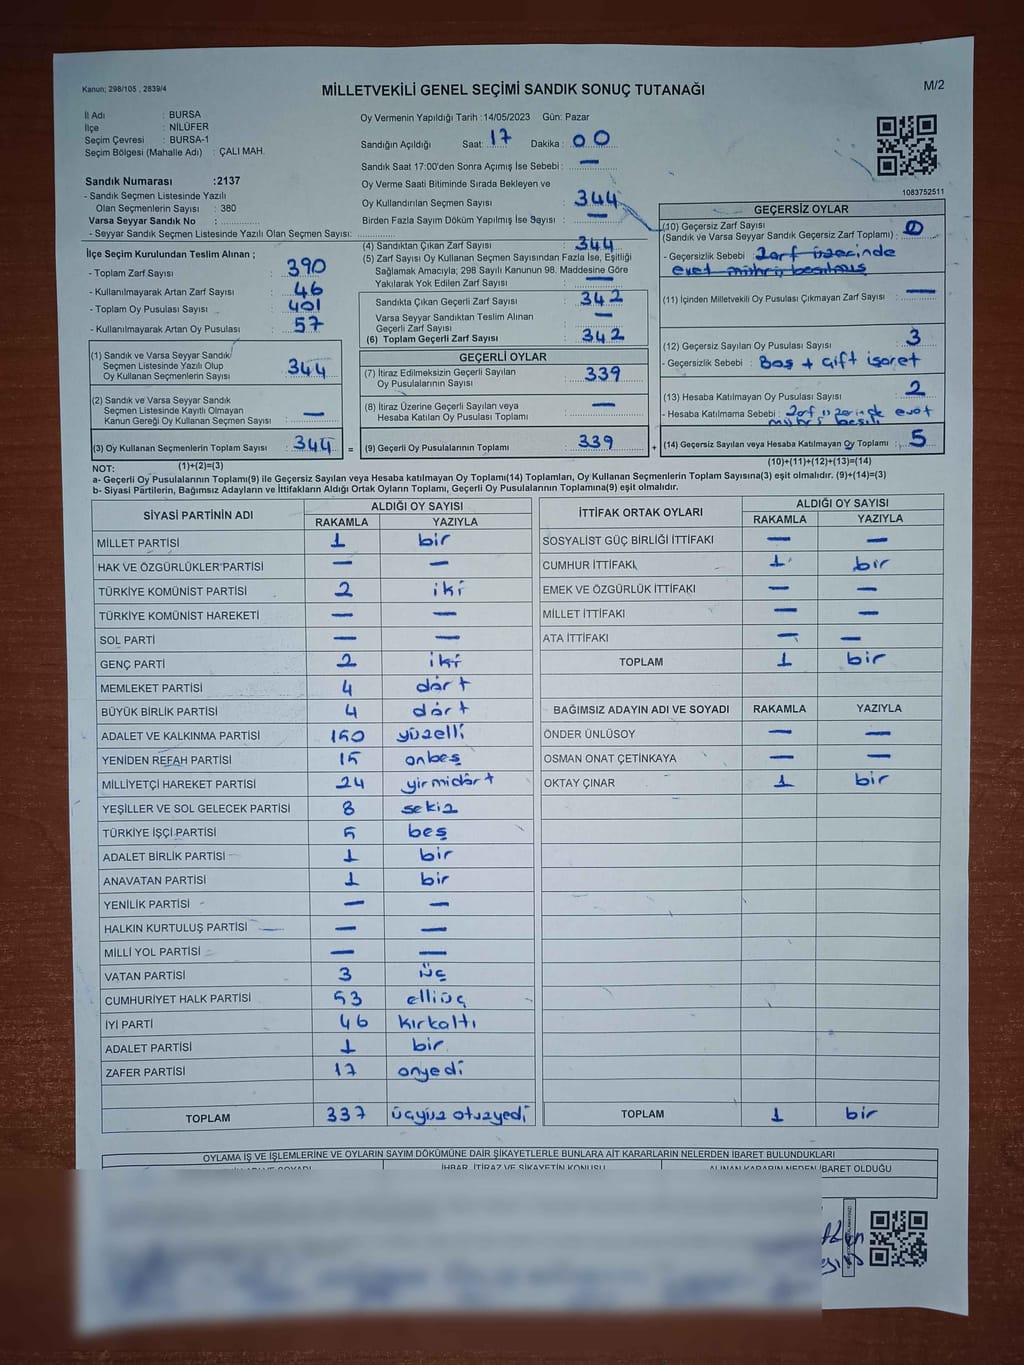 Kanun; 298/105 , 2839/4
MİLLETVEKİLİ GENEL SEÇİMİ SANDIK SONUÇ TUTANAĞI
M/2
İl Adı : BURSA
İlçe : NİLÜFER
Seçim Çevresi : BURSA-1
Seçim Bölgesi (Mahalle Adı) : ÇALI MAH.
Sandık Numarası :2137
- Sandık Seçmen Listesinde Yazılı
Olan Seçmenlerin Sayısı : 380
Varsa Seyyar Sandık No :
- Seyyar Sandık Seçmen Listesinde Yazılı Olan Seçmen Sayısı:
Oy Vermenin Yapıldığı Tarih :14/05/2023 Gün: Pazar
Sandığın Açıldığı Saat: 17 Dakika : 00
Sandık Saat 17:00'den Sonra Açımış İse Sebebi : —
Oy Verme Saati Bitiminde Sırada Bekleyen ve
Oy Kullandırılan Seçmen Sayısı : 344
Birden Fazla Sayım Döküm Yapılmış İse Sayısı : —
1083752511
İlçe Seçim Kurulundan Teslim Alınan ;
- Toplam Zarf Sayısı : 390
- Kullanılmayarak Artan Zarf Sayısı : 46
- Toplam Oy Pusulası Sayısı : 401
- Kullanılmayarak Artan Oy Pusulası : 57
(1) Sandık ve Varsa Seyyar Sandık
Seçmen Listesinde Yazılı Olup
Oy Kullanan Seçmenlerin Sayısı : 344
(2) Sandık ve Varsa Seyyar Sandık
Seçmen Listesinde Kayıtlı Olmayan
Kanun Gereği Oy Kullanan Seçmen Sayısı : —
(3) Oy Kullanan Seçmenlerin Toplam Sayısı : 344 =
(4) Sandıktan Çıkan Zarf Sayısı : 344
(5) Zarf Sayısı Oy Kullanan Seçmen Sayısından Fazla İse, Eşitliği
Sağlamak Amacıyla; 298 Sayılı Kanunun 98. Maddesine Göre
Yakılarak Yok Edilen Zarf Sayısı : —
Sandıkta Çıkan Geçerli Zarf Sayısı : 342
Varsa Seyyar Sandıktan Teslim Alınan
Geçerli Zarf Sayısı : —
(6) Toplam Geçerli Zarf Sayısı : 342
GEÇERLİ OYLAR
(7) İtiraz Edilmeksizin Geçerli Sayılan
Oy Pusulalarının Sayısı : 339
(8) İtiraz Üzerine Geçerli Sayılan veya
Hesaba Katılan Oy Pusulası Toplamı : —
(9) Geçerli Oy Pusulalarının Toplamı : 339 +
GEÇERSİZ OYLAR
(10) Geçersiz Zarf Sayısı
(Sandık ve Varsa Seyyar Sandık Geçersiz Zarf Toplamı) : 0
- Geçersizlik Sebebi : Zarf üzerinde
evet mührü basılmış
(11) İçinden Milletvekili Oy Pusulası Çıkmayan Zarf Sayısı : —
(12) Geçersiz Sayılan Oy Pusulası Sayısı : 3
- Geçersizlik Sebebi : Boş + Çift işaret
(13) Hesaba Katılmayan Oy Pusulası Sayısı : 2
- Hesaba Katılmama Sebebi : Zarf üzerinde evet
(14) Geçersiz Sayılan veya Hesaba Katılmayan Oy Toplamı : 5
NOT: (1)+(2)=(3)
(10)+(11)+(12)+(13)=(14)
a- Geçerli Oy Pusulalarının Toplamı(9) ile Geçersiz Sayılan veya Hesaba katılmayan Oy Toplamı(14) Toplamları, Oy Kullanan Seçmenlerin Toplam Sayısına(3) eşit olmalıdır. (9)+(14)=(3)
b- Siyasi Partilerin, Bağımsız Adayların ve İttifakların Aldığı Ortak Oyların Toplamı, Geçerli Oy Pusulalarının Toplamına(9) eşit olmalıdır.
SİYASİ PARTİNİN ADI ALDIĞI OY SAYISI
RAKAMLA YAZIYLA
MİLLET PARTİSİ 1 bir
HAK VE ÖZGÜRLÜKLER PARTİSİ — —
TÜRKİYE KOMÜNİST PARTİSİ 2 iki
TÜRKİYE KOMÜNİST HAREKETİ — —
SOL PARTİ — —
GENÇ PARTİ 2 iki
MEMLEKET PARTİSİ 4 dört
BÜYÜK BİRLİK PARTİSİ 4 dört
ADALET VE KALKINMA PARTİSİ 150 yüzelli
YENİDEN REFAH PARTİSİ 15 onbeş
MİLLİYETÇİ HAREKET PARTİSİ 24 yirmidört
YEŞİLLER VE SOL GELECEK PARTİSİ 8 sekiz
TÜRKİYE İŞÇİ PARTİSİ 5 beş
ADALET BİRLİK PARTİSİ 1 bir
ANAVATAN PARTİSİ 1 bir
YENİLİK PARTİSİ — —
HALKIN KURTULUŞ PARTİSİ — —
MİLLİ YOL PARTİSİ — —
VATAN PARTİSİ 3 üç
CUMHURİYET HALK PARTİSİ 53 elliüç
İYİ PARTİ 46 kırkaltı
ADALET PARTİSİ 1 bir
ZAFER PARTİSİ 17 onyedi
TOPLAM 337 üçyüz otuzyedi
İTTİFAK ORTAK OYLARI ALDIĞI OY SAYISI
RAKAMLA YAZIYLA
SOSYALİST GÜÇ BİRLİĞİ İTTİFAKI — —
CUMHUR İTTİFAKI 1 bir
EMEK VE ÖZGÜRLÜK İTTİFAKI — —
MİLLET İTTİFAKI — —
ATA İTTİFAKI — —
TOPLAM 1 bir
BAĞIMSIZ ADAYIN ADI VE SOYADI RAKAMLA YAZIYLA
ÖNDER ÜNLÜSOY — —
OSMAN ONAT ÇETİNKAYA — —
OKTAY ÇINAR 1 bir
TOPLAM 1 bir
OYLAMA İŞ VE İŞLEMLERİNE VE OYLARIN SAYIM DÖKÜMÜNE DAİR ŞİKAYETLERLE BUNLARA AİT KARARLARIN NELERDEN İBARET BULUNDUKLARI
İHBAR, İTİRAZ VE ŞİKAYETİN KONUSU ALINAN KARARIN NEDEN İBARET OLDUĞU